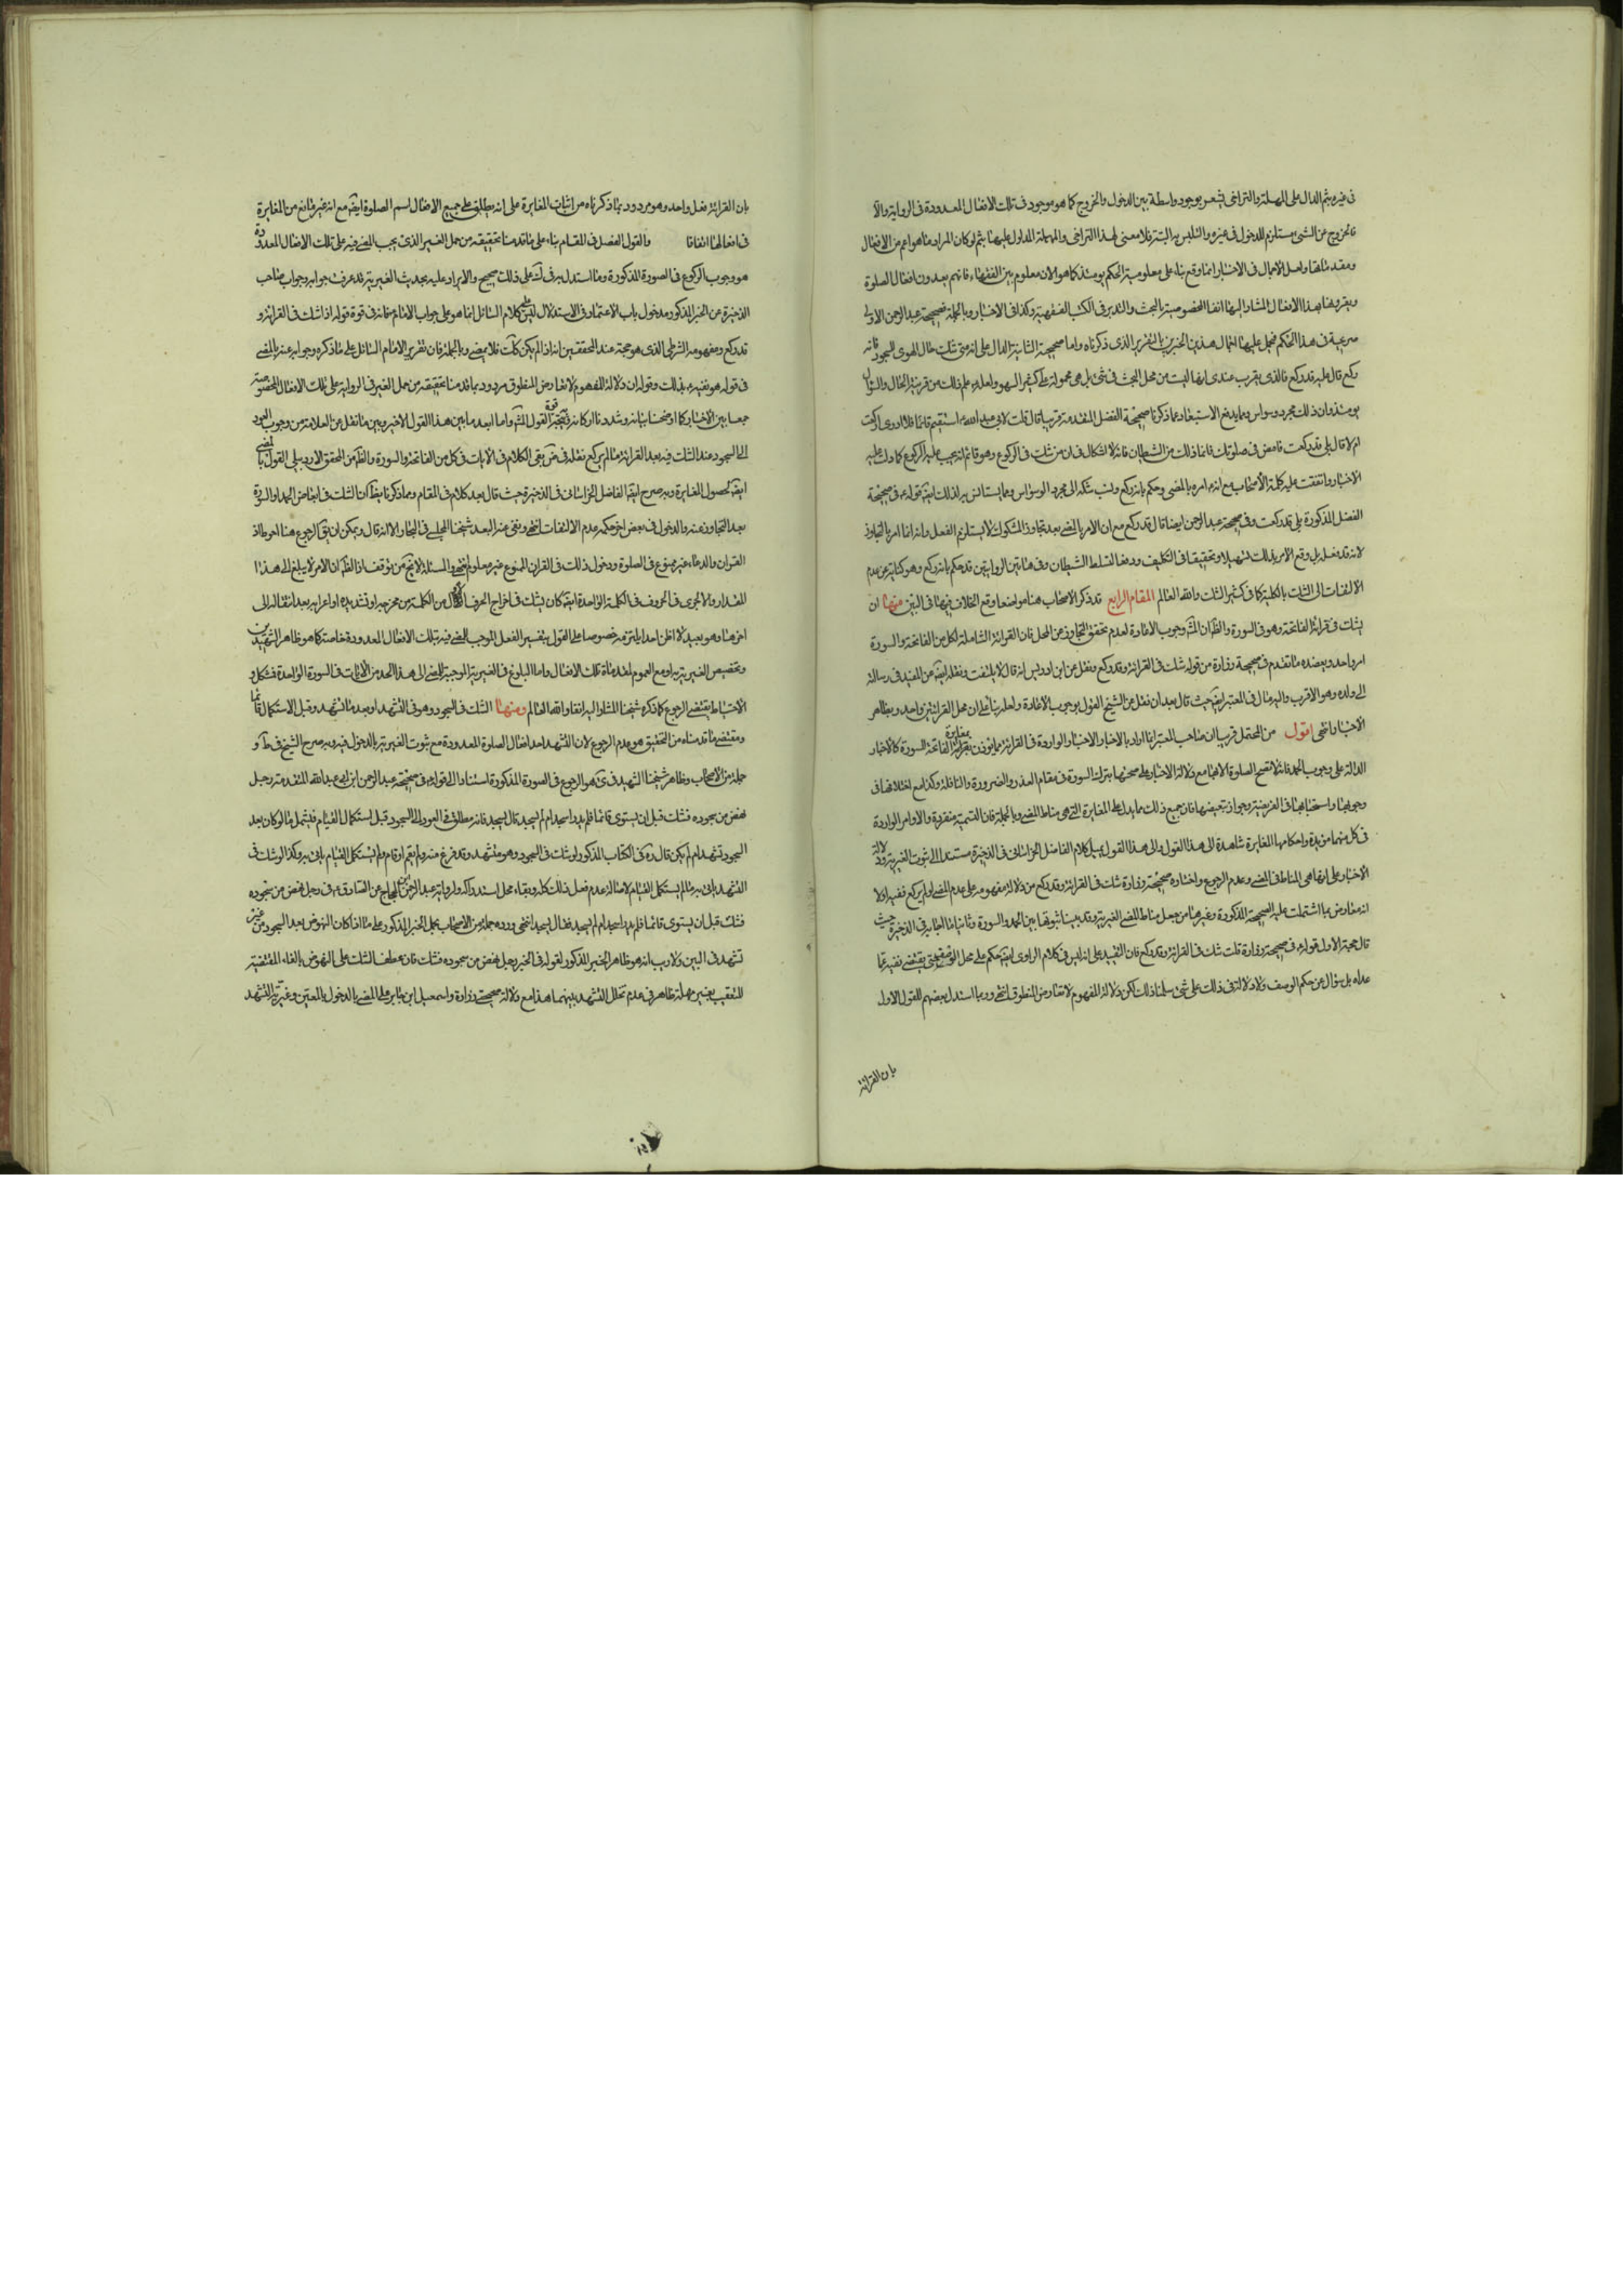 في غيره بثم الدال على المهلة والتراخي يشعر بوجود واسطة بين الدخول والخروج كما هو موجود في تلك الافعال المعدودة في الرواية والا
فالخروج عن الشئ يستلزم للدخول في غيره والتلبس به البتة فلا معنى لهذا التراخي والمهلة المدلول عليهما بثم لو كان المراد ما هو اعم من الافعال
ومقدماتها ولعل الاجمال في الاخبار انما وقع بناء على معلومية الحكم يومئذ كما هو الان معلوم بين الفقهاء فانهم يعدون افعال الصلوة
ويفردونها بهذا الافعال المشار اليها انفا المخصوصة بالبحث والتدبر في الكتب الفقهية وكذا في الاخبار وبالجملة فصحيحة عبد الرحمن الاولى
صريحة في هذا الحكم فيحمل عليها اجمال هذين الخبرين بالتقريب الذي ذكرناه واما صحيحة الثانية الدال على انه متى شك حال الهوي للسجود فانه
ركع قال عليه قد ركع فالذي يقرب عندي انها ليست من محل البحث في شئ بل هي محمولة على كثير السهو ولعله علم ذلك من قرينة الحال والسؤال
يومئذ وان ذلك مجرد وسواس ومما يدفع الاستبعاد عما ذكرنا صحيحة الفضل المتقدمة قريبا قال قلت لابي عبد الله استتم قائما فلا ادري اركعت
ام لا قال بلى قد ركعت فامض في صلوتك فانما ذلك من الشيطان فانه لا اشكال في ان من شك في الركوع وهو قائم انه يجب عليه الركوع كما دلت عليه
الاخبار واتفقت عليه كلمة الاصحاب مع انه امره بالمضي وحكم بانه ركع ونسب شكه الى مجرد الوسواس ومما يستانس به لذلك ايضا قوله في صحيحة
الفضل المذكورة بلى قد ركعت وفي صحيحة عبد الرحمن ايضا قال قد ركع مع ان الامر بالمضي بعد تجاوز المشكوك لا يستلزم الفعل وانه انما امر بالتجاوز
لانه قد فعل بل وقع الامر بذلك تسهيلا وتخفيفا في التكليف ودفعا لتسلط الشيطان وفي هاتين الروايتين قد حكم بانه ركع وهو كناية عن عدم
الالتفات الى الشك بالكلية كما في كثير الشك والله العالم المقام الرابع قد ذكر الاصحاب هنا مواضعا وقع الخلاف فيها في البين منها ان
يشك في قرائة الفاتحة وهو في السورة والظ ان المش وجوب الاعادة لعدم تحقق التجاوز عن المحل فان القرائة الشاملة لكل من الفاتحة والسورة
امر واحد ويعضده ما تقدم في صحيحة زرارة من قوله شك في القرائة وقد ركع ونقل عن ابن ادريس انه قال لا يلتفت ونقله ايضا عن المفيد في رسالته
الى ولده وهو الاقرب واليه مال في المعتبر ايضا حيث قال بعد ان نقل عن الشيخ القول بوجوب الاعادة ولعله بناء على ان محل القرائتين واحد وبظاهر
الاخبار انتهى اقول من المحتمل قريبا ان صاحب المعتبر انما اراد بالاخبار الاخبار الواردة في القرائة مما يؤذن بمغايرة قرائة الفاتحة السورة كالاخبار
الدالة على وجوب الحمد فانه لا تصح الصلوة الا بها مع دلالة الاخبار على صحتها بترك السورة في مقام العذر والضرورة والنافلة وكذا مع اختلافها في
وجوبها واستحبابها في الفريضة وجواز تبعيضها فان جميع ذلك مما يدل على المغايرة التي هي مناط المضي وبالجملة فان التسمية منفردة والاوامر الواردة
في كل منهما منفردة واحكامها المغايرة شاهدة الى هذا القول والى هذا القول يميل كلام الفاضل الخراساني في الذخيرة مستندا الى ثبوت الغيرية ودلالة
الاخبار على انها هي المناط في المضي وعدم الرجوع واختاره صحيحة زرارة شك في القرائة وقد ركع من دلالة مفهومه على عدم المضي لو لم يركع ففيه اولا
انه معارض بما اشتملت عليه الصحيحة المذكورة وغيرها من جعل مناط المضي الغيرية وقد بينا ثبوتها بين الحمد والسورة وثانيا ما اجاب في الذخيرة حيث
قال حجة الاول قوله في صحيحة زرارة قلت شك في القرائة وقد ركع فان التقييد على انه ليس في كلام الراوي ايضا حكم على محل الوصف حتى يقتضي نفيه عما
عداه بل سؤال عن حكم الوصف ولا دلالة في ذلك على شئ سلمنا ذلك لكن دلالة المفهوم لا تعارض المنطوق انتهى وربما استدل بعضهم للقول الاول
بان القرائة
بان القرائة فعل واحد وهو مردود بما ذكرناه من اثبات المغايرة على انه يطلق على جميع الافعال اسم الصلوة ايضا مع انه غير مانع من المغايرة
في افعالها اتفاقا والقول الفصل في المقام بناء على ما قدمنا تحقيقه من حمل الغير الذي يجب المضي فيه على تلك الافعال المعدودة
هو وجوب الركوع في الصورة المذكورة وما استدل به في على ذلك صحيح والايراد عليه بحديث الغيرية قد عرفت جوابه وجواب صاحب
الذخيرة عن الخبر المذكور مدخول بان الاعتماد في الاستدلال ليس على كلام السائل انما هو على جواب الامام فانه في قوة قوله اذا شك في القرائة و
قد ركع ومفهومه الشرطي الذي هو حجة عند المحققين انه اذا لم يكن كذلك فلا يمضي وبالجملة فان تقرير الامام السائل على ما ذكره وجوابه عنه بالمضي
في قوله هو تقييده بذلك وقوله ان دلالة المفهوم لا تعارض المنطوق مردود بما قدمنا تحقيقه من حمل الغير في الرواية على تلك الافعال المخصوصة
جمعا بين الاخبار كما اوضحنا بيانه وشددنا اركانه فيتجه قوة القول المش واما ابعد ما بين هذا القول الاخير وبين ما نقل عن العلامة من وجوب العود
الى السجود عند الشك فيه بعد القرائة ما لم يركع نقله في بقي الكلام في الايات في كل من الفاتحة والسورة والظ من المحقق الاردبيلي القول بالمضي
ايضا لحصول المغايرة وبه صرح ايضا الفاضل الخراساني في الذخيرة حيث قال بعد كلام في المقام ومما ذكرنا يظهر ان الشك في ابعاض الحمد او السورة
بعد التجاوز عنه والدخول في بعض اخر حكمه عدم الالتفات انتهى ونفى عنه البعد شيخنا المجلسي في البحار الا انه قال ويمكن ان يق الرجوع هنا احوط اذ
القران والدعاء غير ممنوع في الصلوة ودخول ذلك في القران الممنوع غير معلوم انتهى والمسئلة لا تخ من توقف اذ الظ ان الامر لا يبلغ الى هذا
المقدار والا لجرى في الحروف في الكلمة الواحدة ايضا كان يشك في اخراج الحرف الاول من الكلمة من مخرجه او تشديده او اعرابه بعد انتقاله الى
اخرها وهو بعيد لا اظن احدا يلتزمه خصوصا على القول بتفسير الفعل الموجب للمضي فيه بتلك الافعال المعدودة خاصة كما هو ظاهر الشهيدين
وتخصيص الغيرية به او مع العموم لمقدماة تلك الافعال واما البلوغ في الغيرية الموجبة للمضي الى هذا الحد من الايات في السورة الواحدة فمشكل و
الاحتياط يقتضي الرجوع كما ذكره شيخنا المشار اليه انفا والله العالم ومنها الشك في السجود وهو في التشهد او بعد ما تشهد وقبل الاستكمال قائما
ومقتضى ما قدمناه من التحقيق هو عدم الرجوع لان التشهد احد افعال الصلوة المعدودة مع ثبوت الغيرية بالدخول فيه وبه صرح الشيخ في ط و
جملة من الاصحاب وظاهر شيخنا الشهيد في هو الرجوع في الصورة المذكورة استنادا الى قوله في صحيحة عبد الرحمن ابن ابي عبد الله المتقدمة رجل
نهض من سجوده فشك قبل ان يستوي قائما فلم يدر اسجد ام لم يسجد قال يسجد فانه مطلق في العود الى السجود قبل استكمال القيام فيشمل ما لو كان بعد
السجود تشهد ام لم يكن قال ره في الكتاب المذكور لو شك في السجود وهو متشهد وقد فرغ منه ولم يقم او قام ولم يستكمل القيام ياتي به وكذا لو شك في
التشهد ياتي به ما لم يستكمل القيام لاصالة عدم فعل ذلك كله وبقاء محل استدراكه ولرواية عبد الرحمن بن الحجاج عن الصادق في رجل نهض من سجوده
فشك قبل ان يستوي قائما فلم يدر اسجد ام لم يسجد فقال يسجد انتهى ورده جملة من الاصحاب بحمل الخبر المذكور على ما اذا كان النهوض بعد السجود من غير
تشهد في البين ولا ريب انه هو ظاهر الخبر المذكور لقوله في الخبر رجل نهض من سجوده فشك فان عطف الشك على النهوض بالفاء المقتضية
للتعقيب بغير مهلة ظاهر في عدم تخلل التشهد بينهما هذا مع دلالة صحيحة زرارة واسمعيل ابن جابر على المضي بالدخول بالمعين وغيرية التشهد